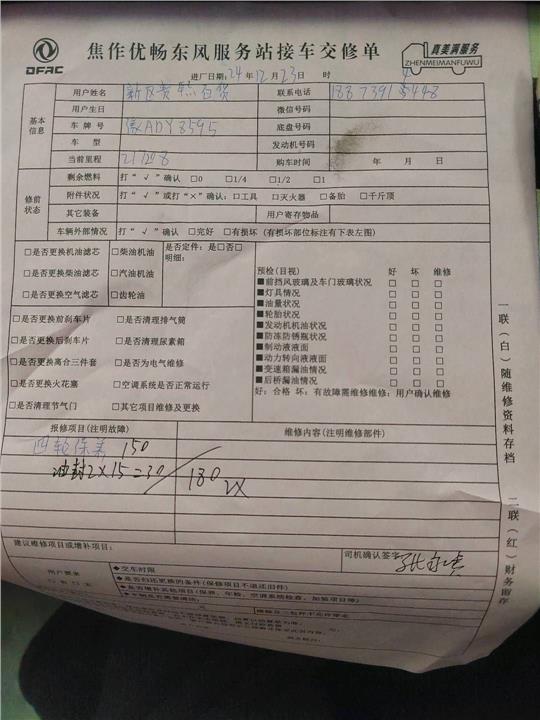 DFAC
焦作优畅东风服务站接车交修单
真美满服务
ZHENMEIMANFUWU
进厂日期: 24 年 12 月 23 日 时
基本信息
用户姓名
联系电话
用户生日 微信号码
车 牌 号 ADY8595 底盘号码
车 型 发动机号码
当前里程 购车时间 年 月 日
修前状态
剩余燃料 打“√”确认 □0 □1/4 □1/2 □1
附件状况 打“√”或打“×”确认:□工具 □灭火器 □备胎 □千斤顶
其它装备 用户寄存物品
车辆外部情况 打“√”确认 □完好 □有损坏 (有损坏部位标注有下表左图)
□是否更换机油滤芯 □柴油机油 是否定件: 是□否□
□是否更换柴油滤芯 □汽油机油 明细:
□是否更换空气滤芯 □齿轮油
□是否更换前刹车片 □是否清理排气筒
□是否更换后刹车片 □是否清理尿素箱
□是否更换离合三件套 □是否为电气维修
□是否更换火花塞 □空调系统是否正常运行
□是否清理节气门 □其它项目维修及更换
预检(目视) 好 坏 维修
■前挡风玻璃及车门玻璃状况 □ □ □
■灯具情况 □ □ □
■油量状况 □ □ □
■轮胎状况 □ □ □
■发动机机油状况 □ □ □
■防冻防锈瓶状况 □ □ □
■制动液液面 □ □ □
■动力转向液液面 □ □ □
■变速箱漏油情况 □ □ □
■后桥漏油情况 □ □ □
好: 合格 坏: 有故障需维修维修: 用户确认维修
报修项目(注明故障) 维修内容(注明维修部件)
四轮保养 150
油封2×15=30
180
建议维修项目或增补项目: 司机确认签字
用户要求
◆交车时限
◆是否归还更换的条件(保修项目不退还旧件)
◆是否增补其他项目(保养、年检、空调系统检查、加装项目等)
一联(白)随维修资料存档
二联(红)财务留存